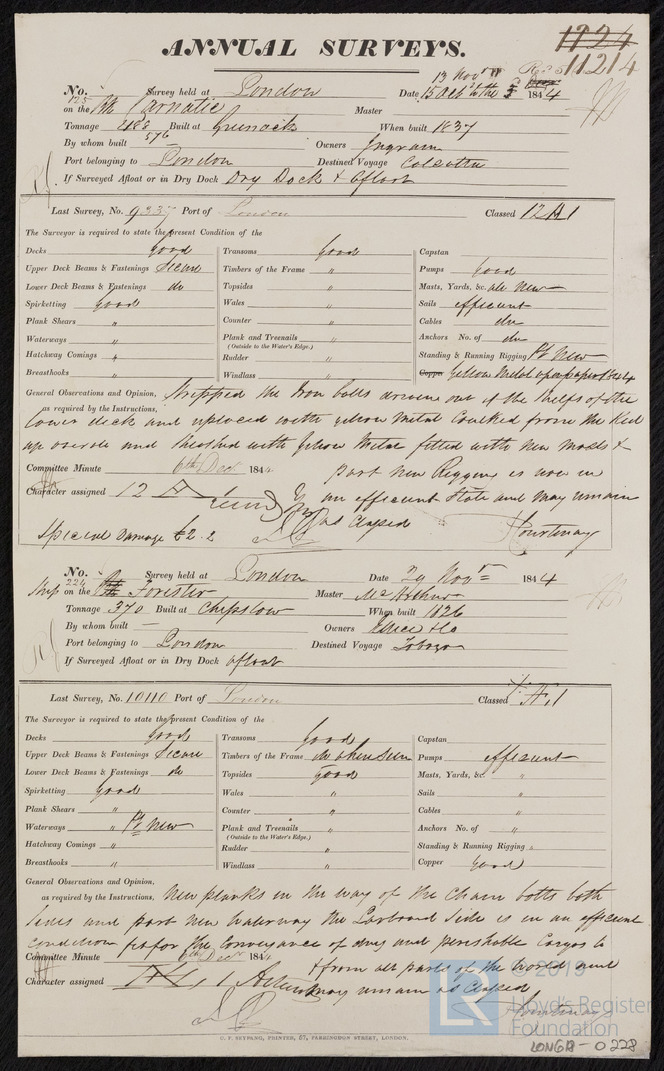 1124
ANNUAL SURVEYS.
11214
13 Novr
No. 125 Survey held at London Date 15 Oct to the 3 1844
on the Bk Carnatic Master
Tonnage 488 576 Built at Greenock When built 1837
By whom built Owners Ingram
Port belonging to London Destined Voyage Calcutta
If Surveyed Afloat or in Dry Dock Dry Dock & afloat
Last Survey, No. 9337 Port of London Classed 12A1
The Surveyor is required to state the present Condition of the
Decks good Transoms Good Capstan
Upper Deck Beams & Fastenings Secure Timbers of the Frame " Pumps Good
Lower Deck Beams & Fastenings do Topsides " Masts, Yards, &c. all New
Spirketting good Wales " Sails efficient
Plank Shears " Counter " Cables do
Waterways " Plank and Treenails " Anchors No. of do
(Outside to the Water's Edge.)
Hatchway Comings " Rudder " Standing & Running Rigging Pt New
Breasthooks " Windlass " Copper Yellow Metal
General Observations and Opinion, Stripped the Iron bolts driven out of the Shelfs of the
as required by the Instructions,
lower deck and replaced with yellow Metal Caulked from the Keel
up overall and sheathed with Yellow Metal fitted with new Masts &
Committee Minute 6th Decr 1844 part new Rigging is now in
Character assigned 12 A 1 an efficient State and may remain
as Classed
Special Damage £2.2 Courtenay
No. 224 Survey held at London Date 29 Novr 1844
Ship on the Forester Master McArthur
Tonnage 370 Built at Chepstow When built 1826
By whom built — Owners Ellice & Co
Port belonging to London Destined Voyage Tobago
If Surveyed Afloat or in Dry Dock afloat
Last Survey, No. 10110 Port of London Classed A.1
The Surveyor is required to state the present Condition of the
Decks good Transoms Good Capstan
Upper Deck Beams & Fastenings Secure Timbers of the Frame do when seen Pumps efficient
Lower Deck Beams & Fastenings do Topsides Good Masts, Yards, &c. "
Spirketting Good Wales " Sails "
Plank Shears " Counter " Cables "
Waterways " Pt New Plank and Treenails " Anchors No. of "
(Outside to the Water's Edge.)
Hatchway Comings " Rudder " Standing & Running Rigging "
Breasthooks " Windlass " Copper Good
General Observations and Opinion,
as required by the Instructions, New planks in the way of the Chain bolts both
Sides and part new Waterway the Larboard Side is in an efficient
condition fit for the conveyance of dry and perishable Cargos to
Committee Minute 6th Decr 1844 & from all parts of the World and
Character assigned may remain as Classed
Courtenay
C. F. SEYFANG, PRINTER, 57, FARRINGDON STREET, LONDON.
LR
© 2019
Lloyd's Register
Foundation